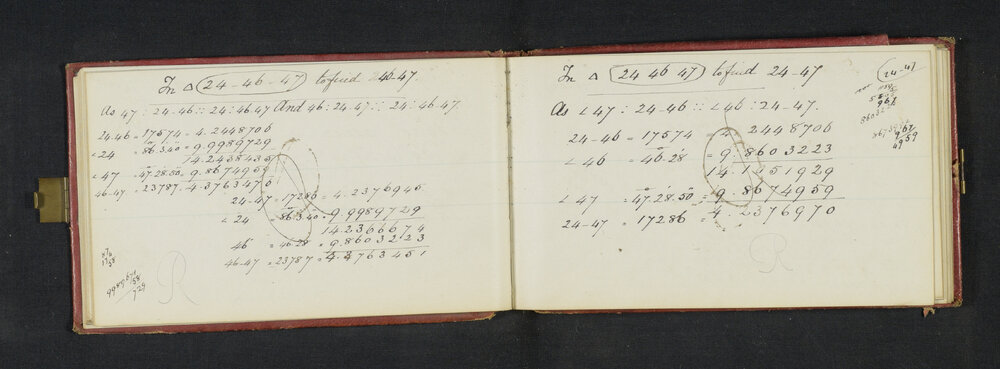 In △ 24-46-47 to find 46-47.
As 47 : 24-46 :: 24 : 46-47 And 46 : 24-47 :: 24 : 46-47.
24-46 = 17574 = 4.2448706
∠24 = 86.3.40 = 9.9989729
14.2438435
∠47 = 47.28.50 = 9.8674959
46-47 = 23787 = 4.3763476
24-47 = 17286 = 4.2376945
∠24 = 86.3.40 = 9.9989729
14.2366674
46 = 46.28 = 9.8603223
46-47 = 23787 = 4.3763451
R
In △ 24 46 47 to find 24-47
24-47
As ∠47 : 24-46 :: ∠46 : 24-47.
24-46 = 17574 = 4.2448706
∠46 = 46.28 = 9.8603223
14.1051929
∠47 = 47.28.50 = 9.8674959
24-47 = 17286 = 4.2376970
R